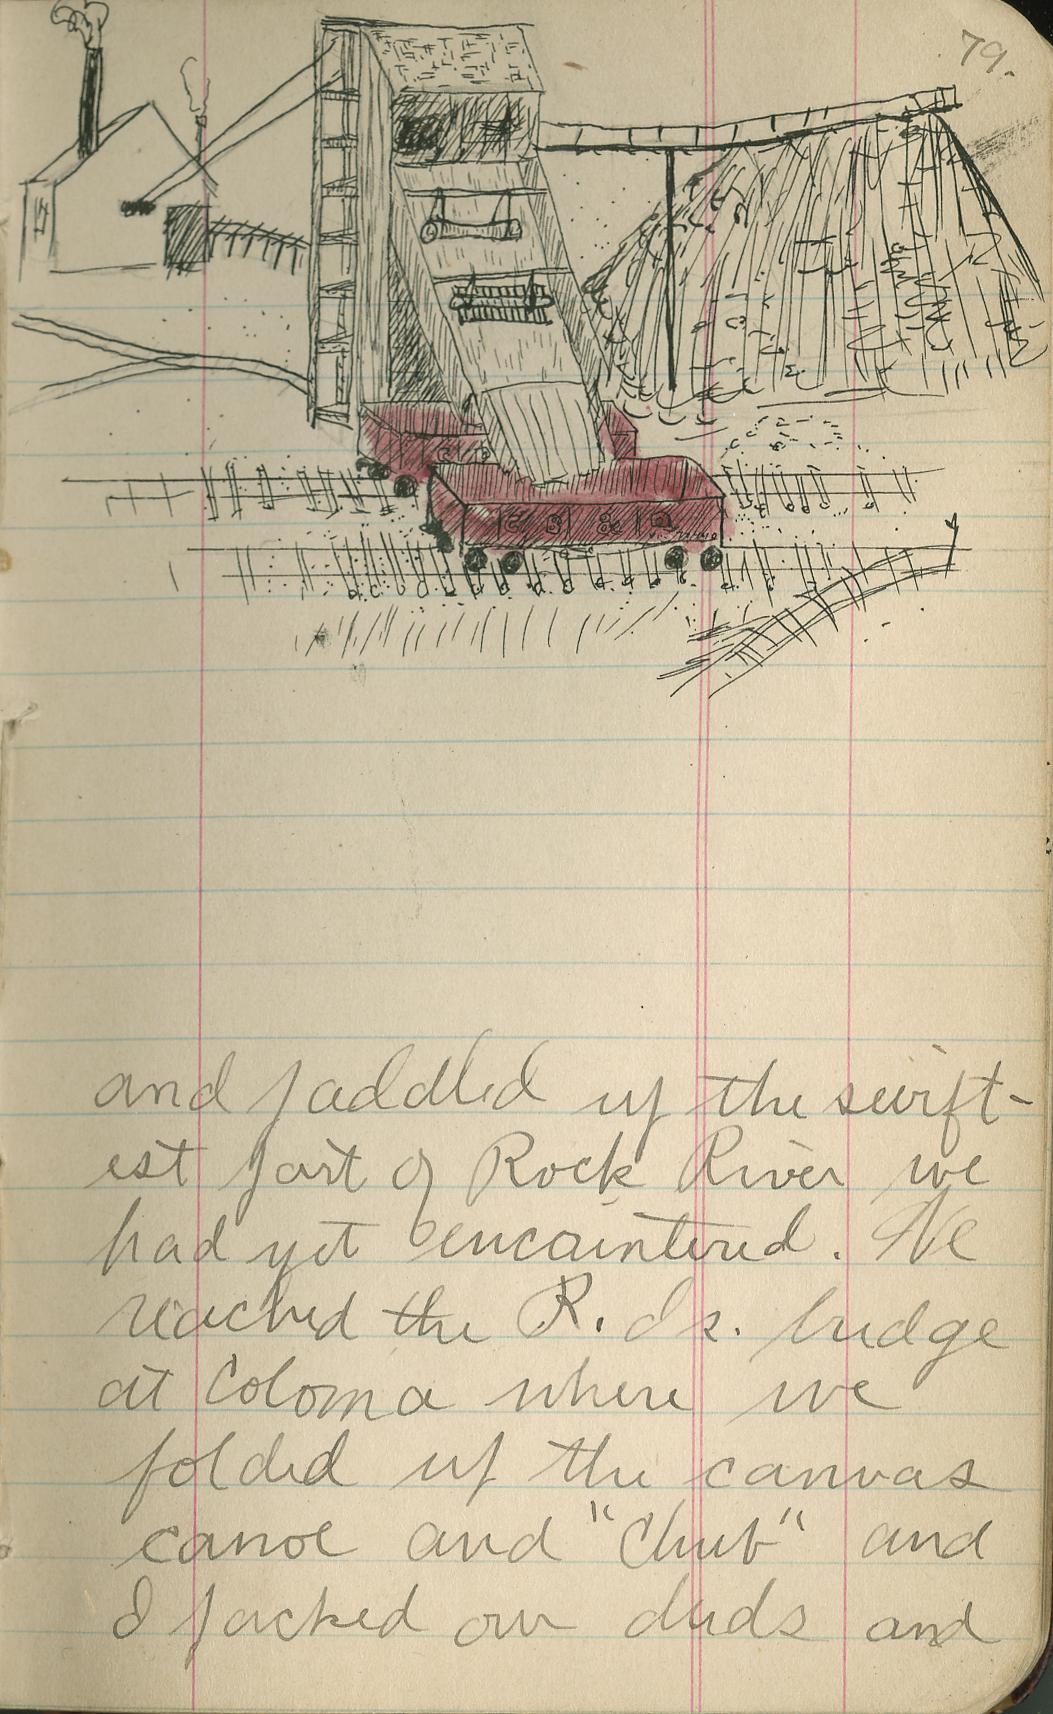 79.
C B & Q
and paddled up the swift-
est part of Rock River we
had yet encountered. We
reached the R. Is. bridge
at Coloma where we
folded up the canvas
canoe and "Chub" and
I packed our duds and